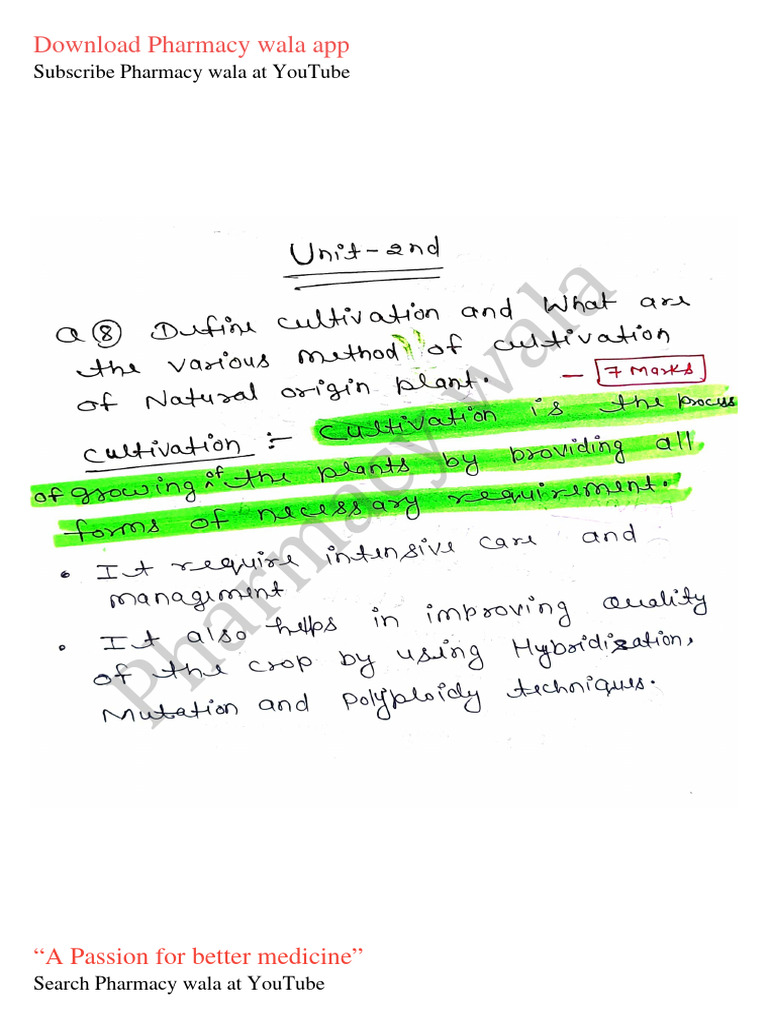 Download Pharmacy wala app
Subscribe Pharmacy wala at YouTube
Unit-2nd
Q ⑧ Define cultivation and What are
the various method of cultivation
of Natural origin plant. — 7 Marks
Cultivation :- Cultivation is the process
of growing of the plants by providing all
forms of necessary requirement.
• It require intensive care and
management
• It also helps in improving quality
of the crop by using Hybridization,
Mutation and Polyploidy techniques.
Pharmacy wala
“A Passion for better medicine”
Search Pharmacy wala at YouTube